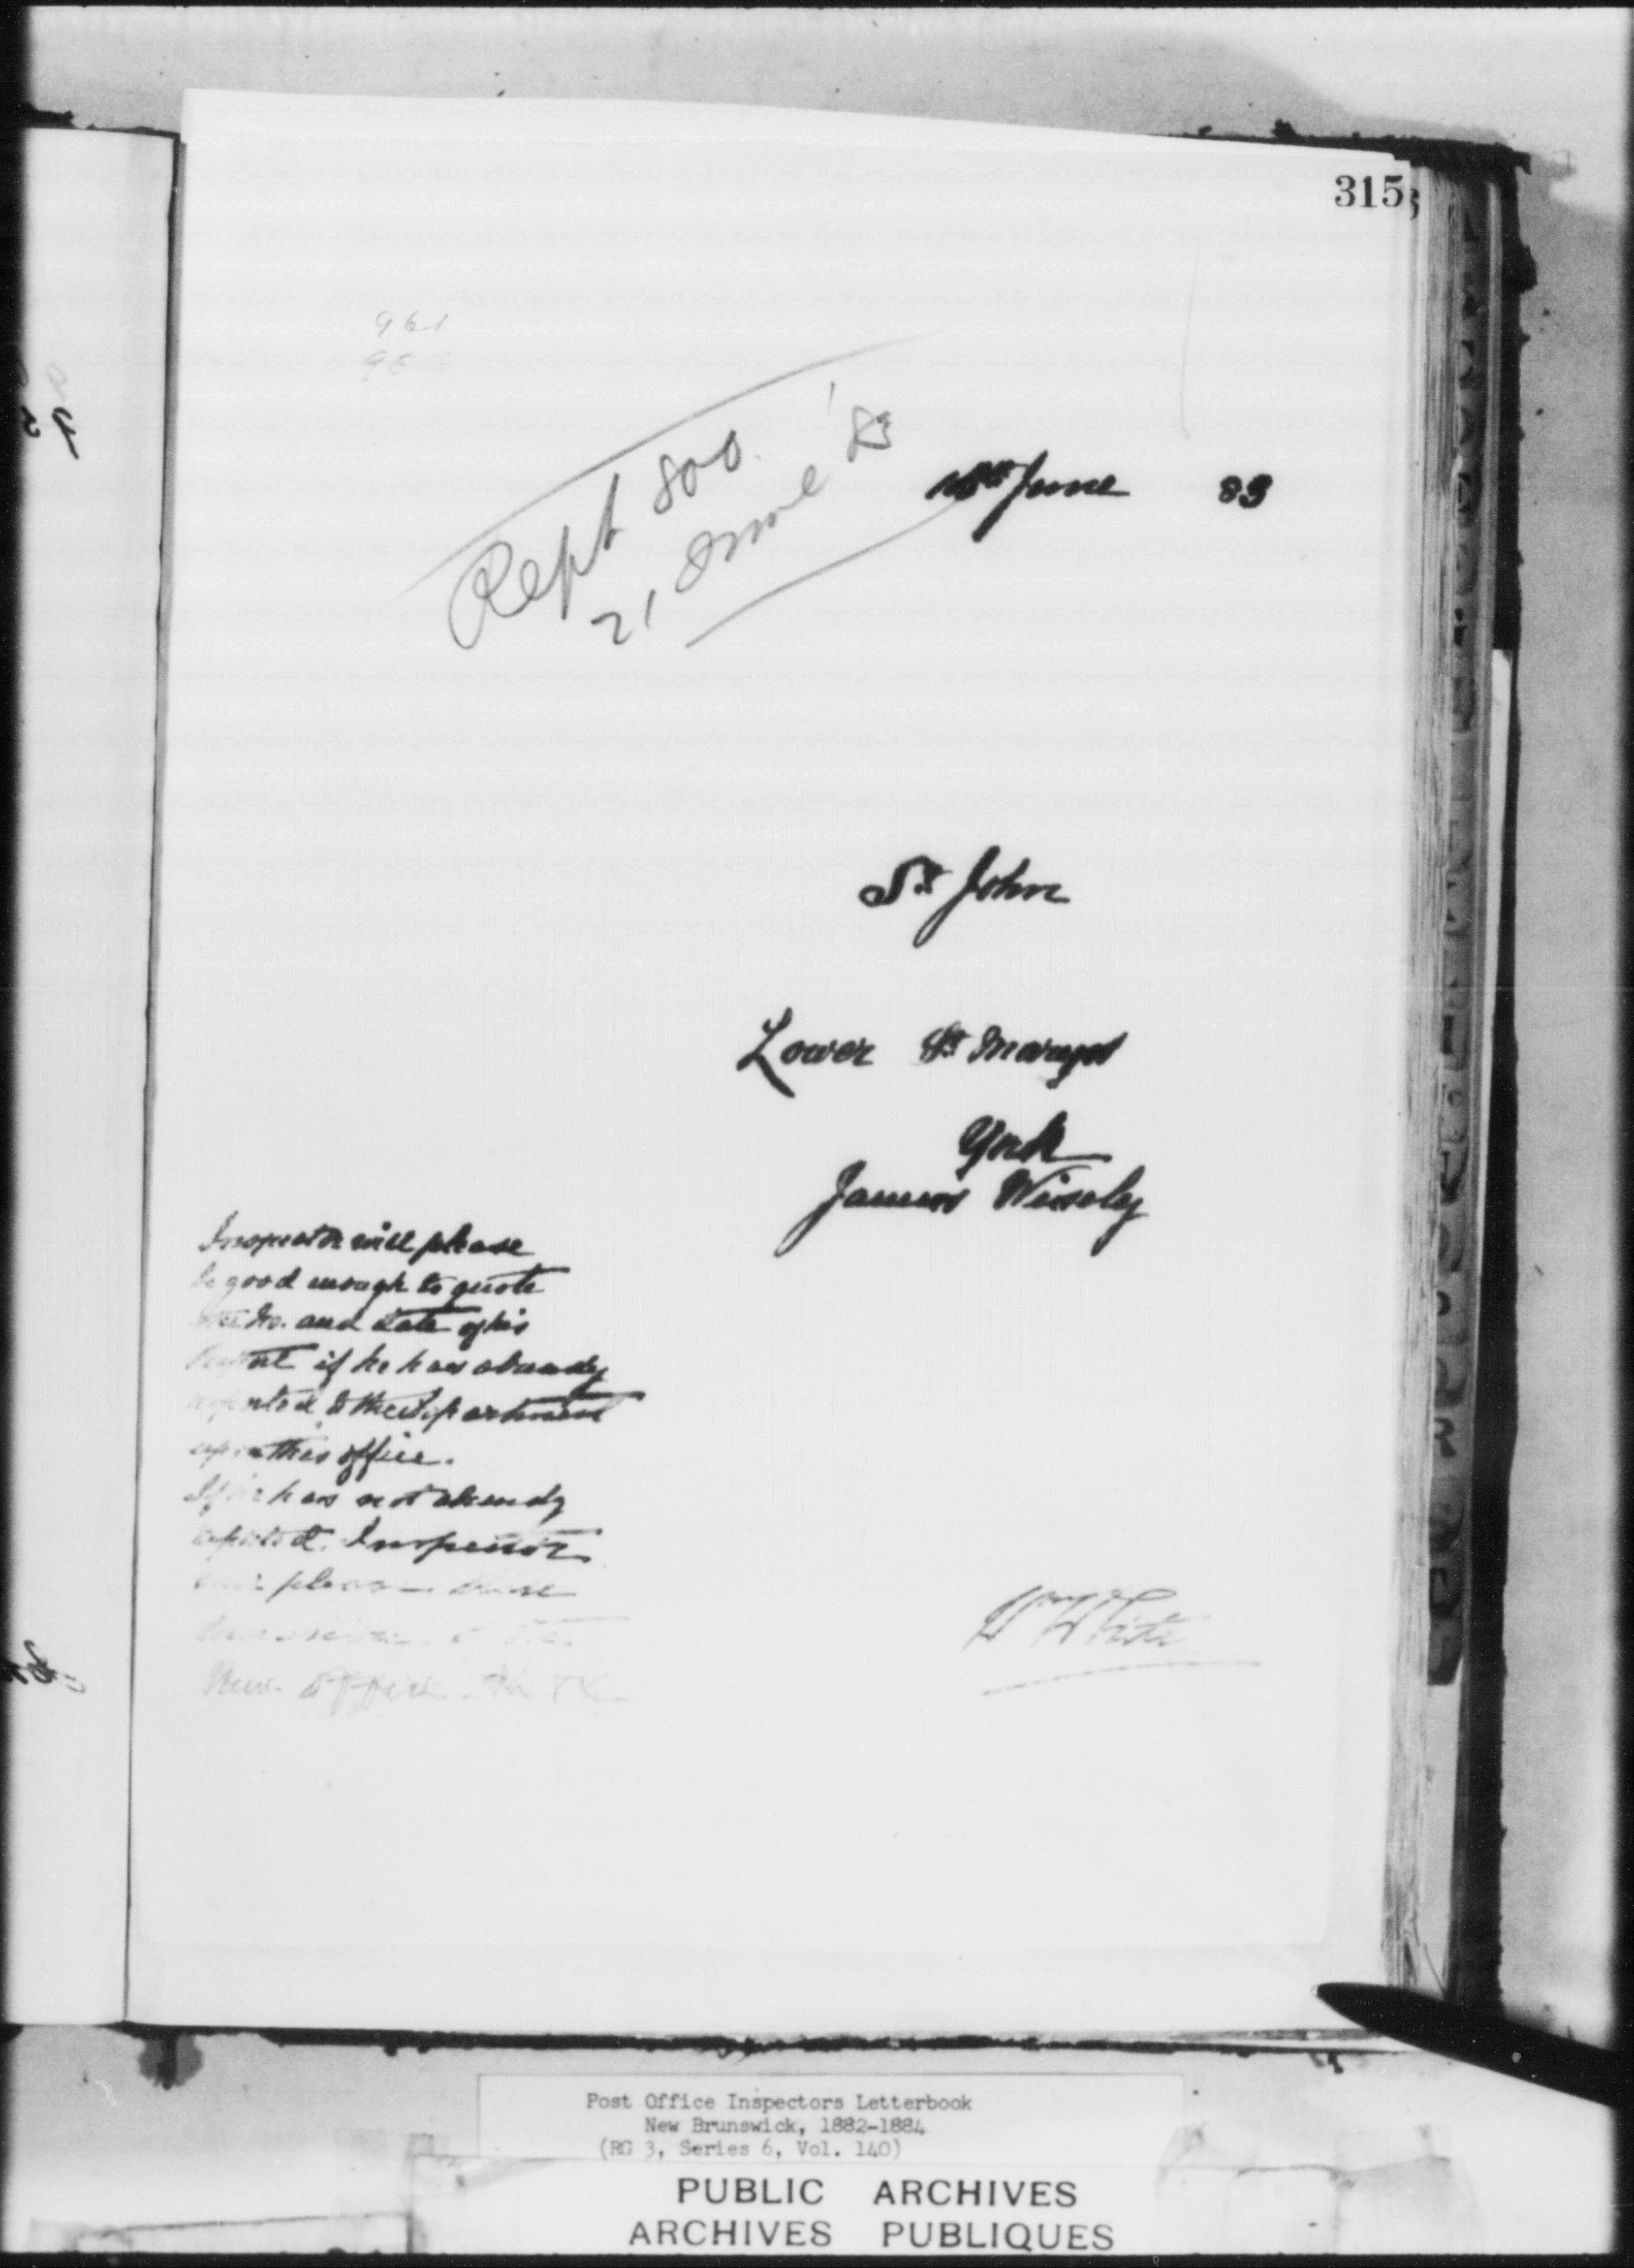 315
961
Rept 800
21 June '83
June 83
St John
Lower St Marys
York
James Wisely
Inspector will please
be good enough to quote
the No. and date of his
Report if he has already
reported to the Department
upon this office.
If he has not already
reported. Inspector
will please
New Office
Wm White
Post Office Inspectors Letterbook
New Brunswick, 1882-1884
(RG 3, Series 6, Vol. 140)
PUBLIC ARCHIVES
ARCHIVES PUBLIQUES